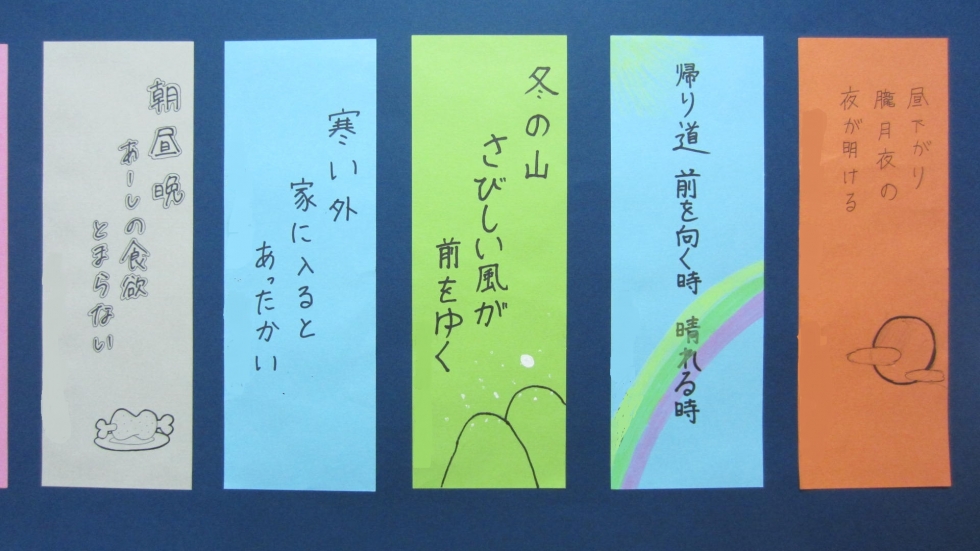 昼下がり
朧月夜の
夜が明ける
帰り道 前を向く時 晴れる時
冬の山
さびしい風が
前をゆく
寒い外
家に入ると
あったかい
朝昼晩
あーしの食欲
とまらない